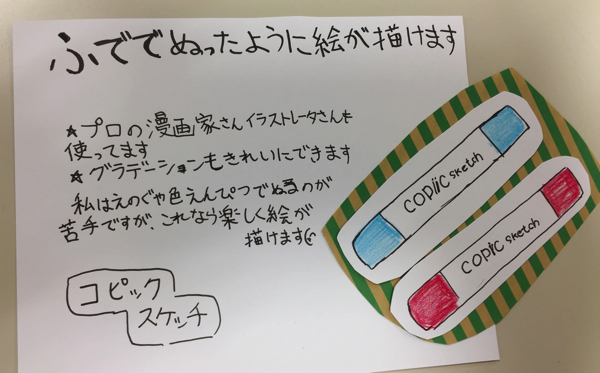 ふででぬったように絵が描けます
★プロの漫画家さんイラストレータさんも
使ってます
★グラデーションもきれいにできます
私はえのぐや色えんぴつでぬるのが
苦手ですが、これなら楽しく絵が
描けます
コピック
スケッチ
COPiiC sketch
COPIC sketch